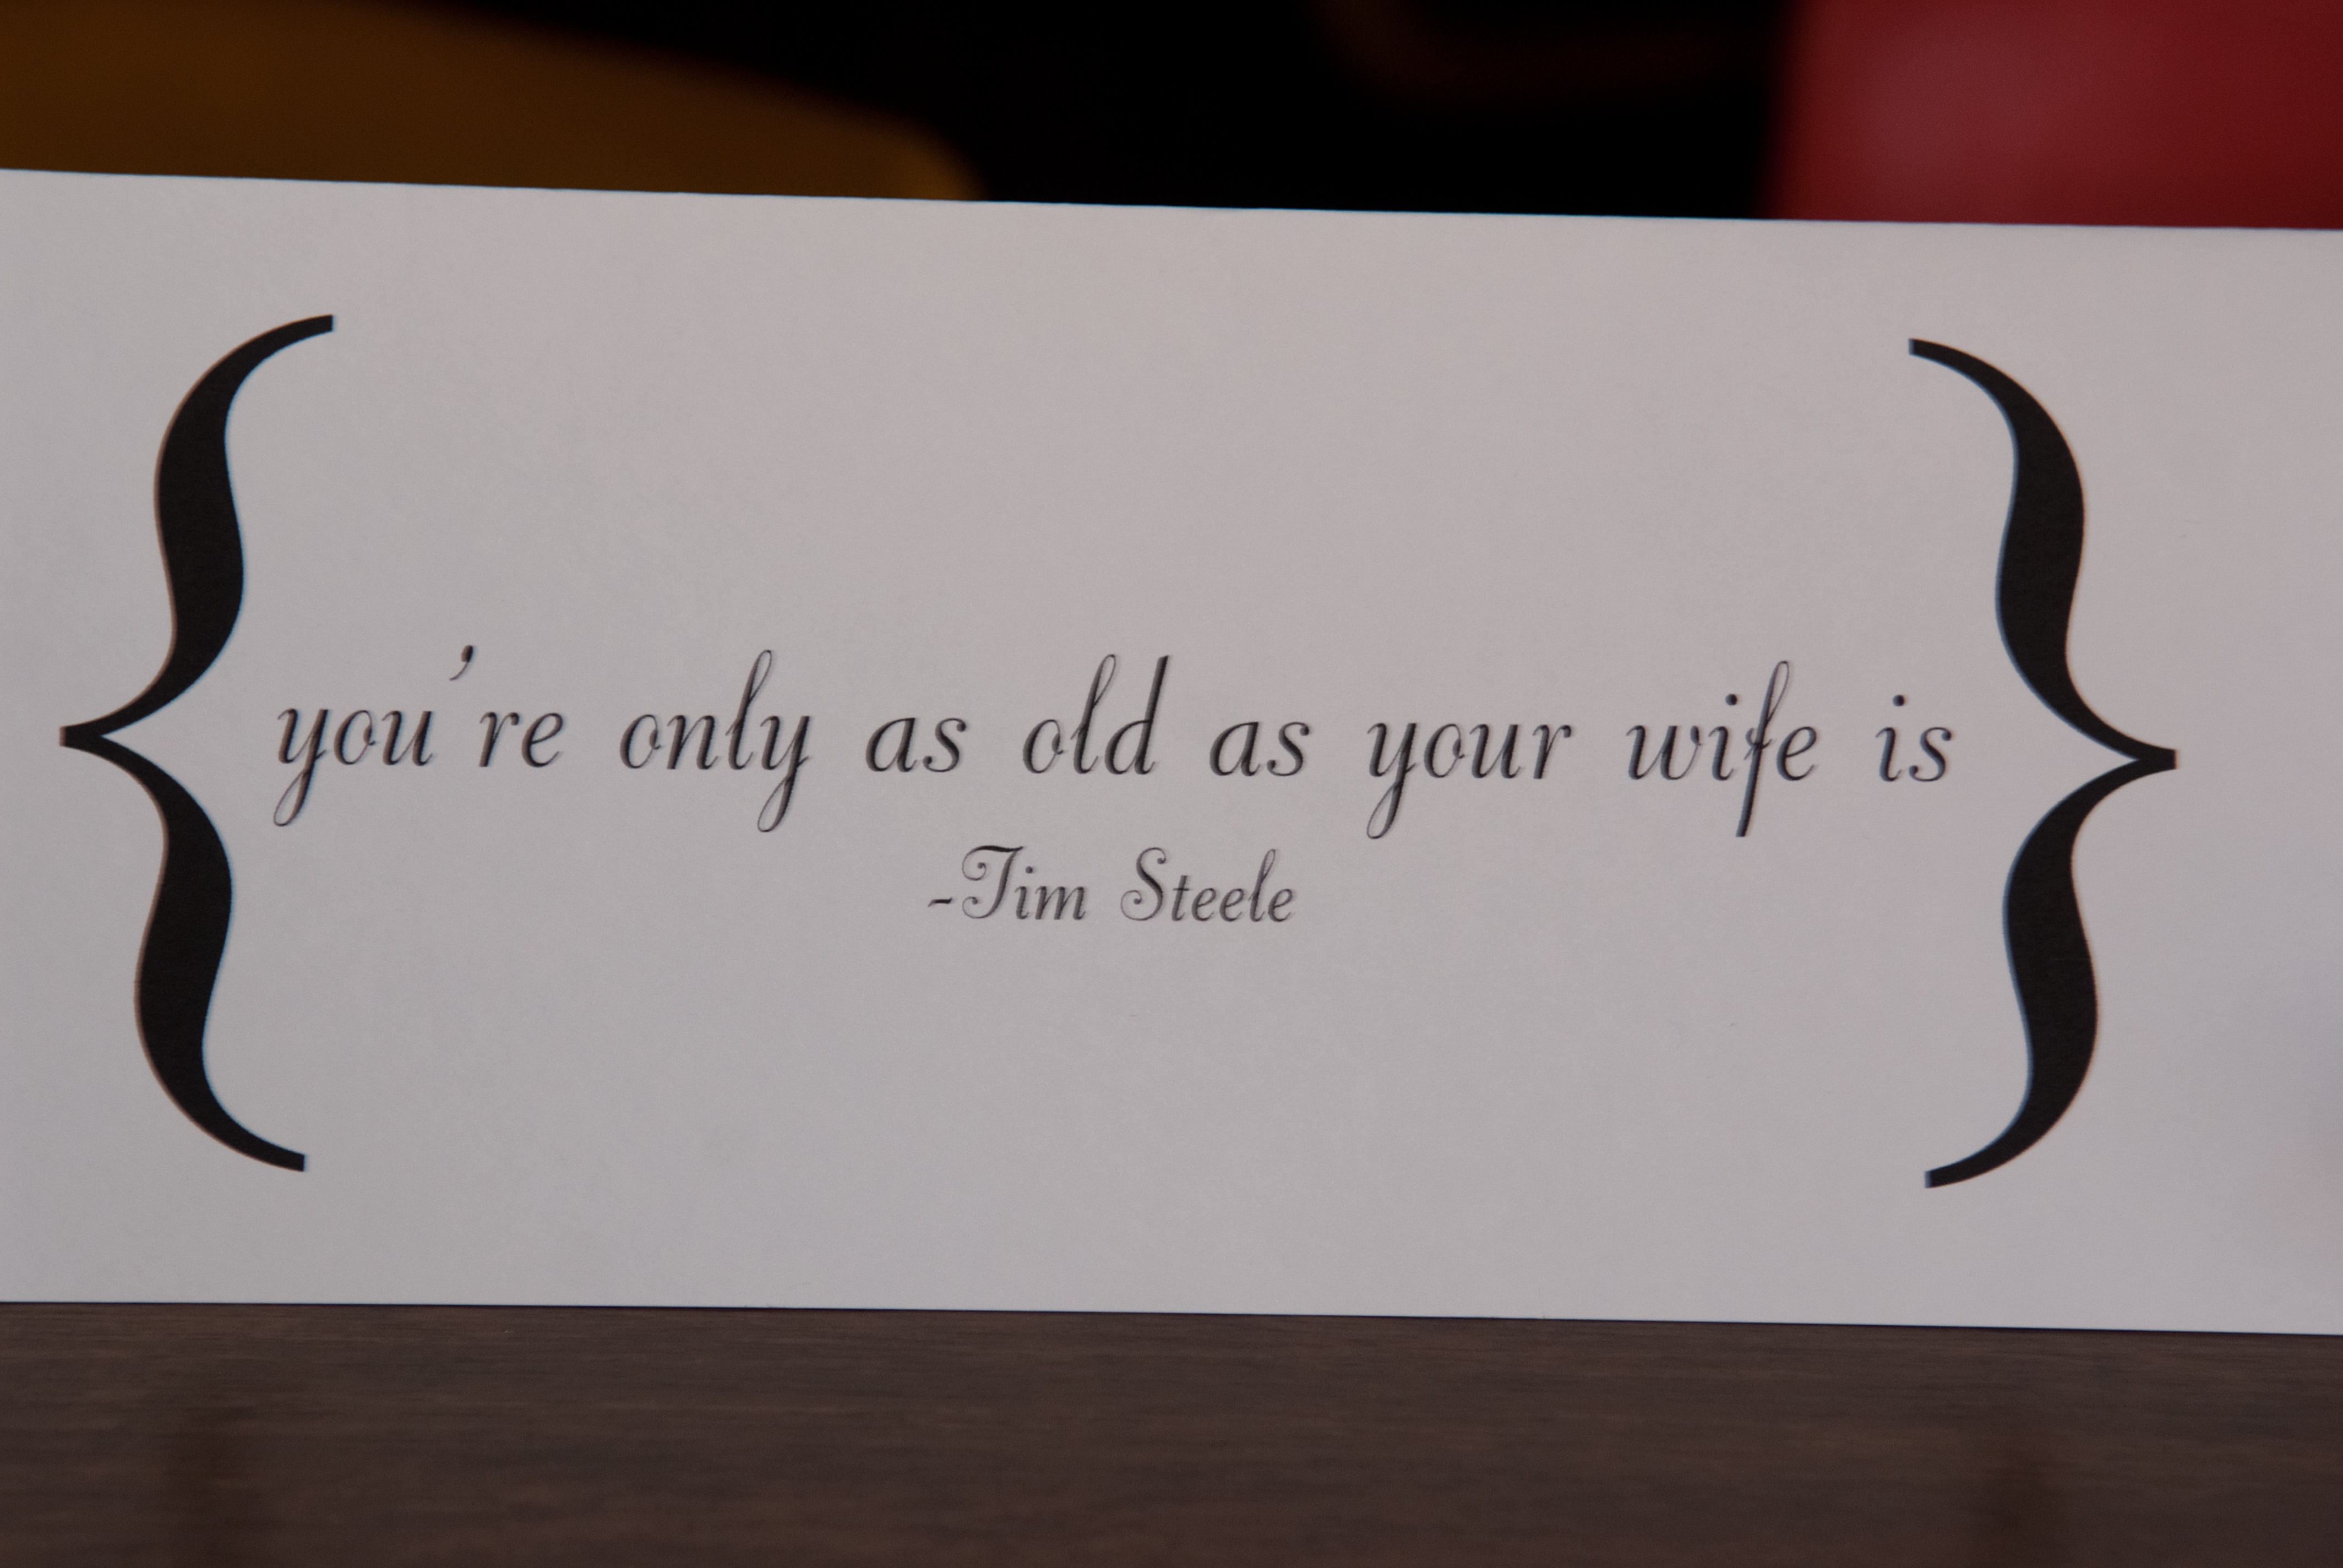 { you're only as old as your wife is }
-Tim Steele